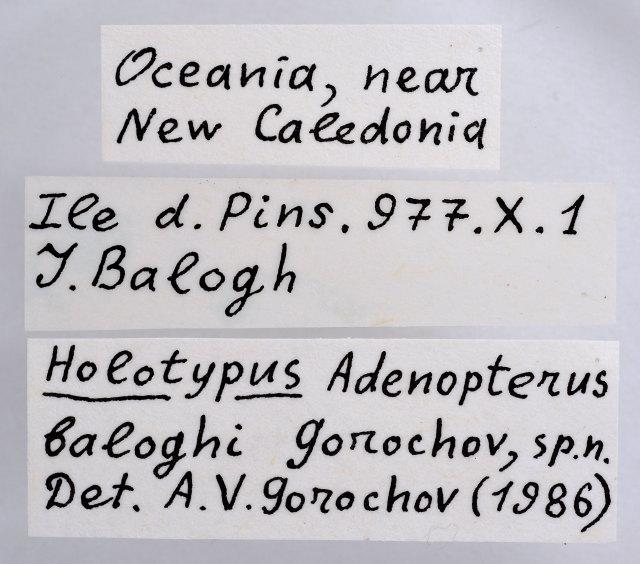 Oceania, near
New Caledonia
Ile d. Pins. 977.X.1
J. Balogh
Holotypus Adenopterus
baloghi Gorochov, sp.n.
Det. A.V. Gorochov (1986)